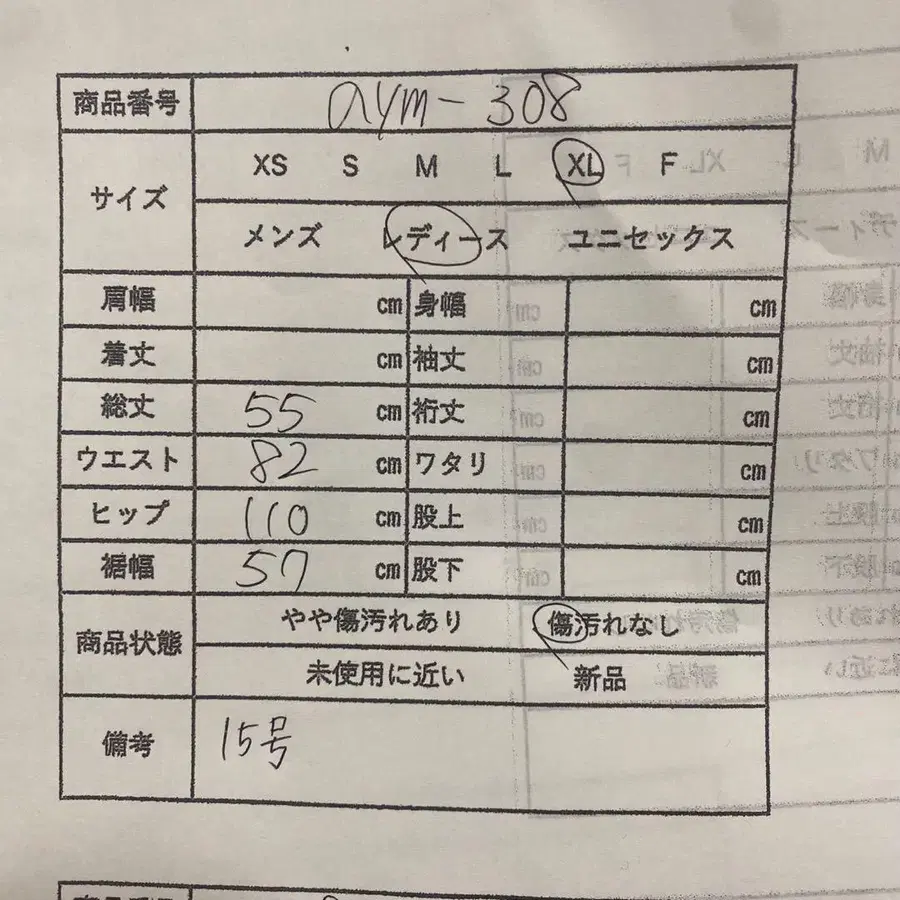 商品番号 aym-308
サイズ XS S M L XL F
メンズ レディース ユニセックス
肩幅 cm 身幅 cm
着丈 cm 袖丈 cm
総丈 55 cm 裄丈 cm
ウエスト 82 cm ワタリ cm
ヒップ 110 cm 股上 cm
裾幅 57 cm 股下 cm
商品状態 やや傷汚れあり 傷汚れなし
未使用に近い 新品
備考 15号